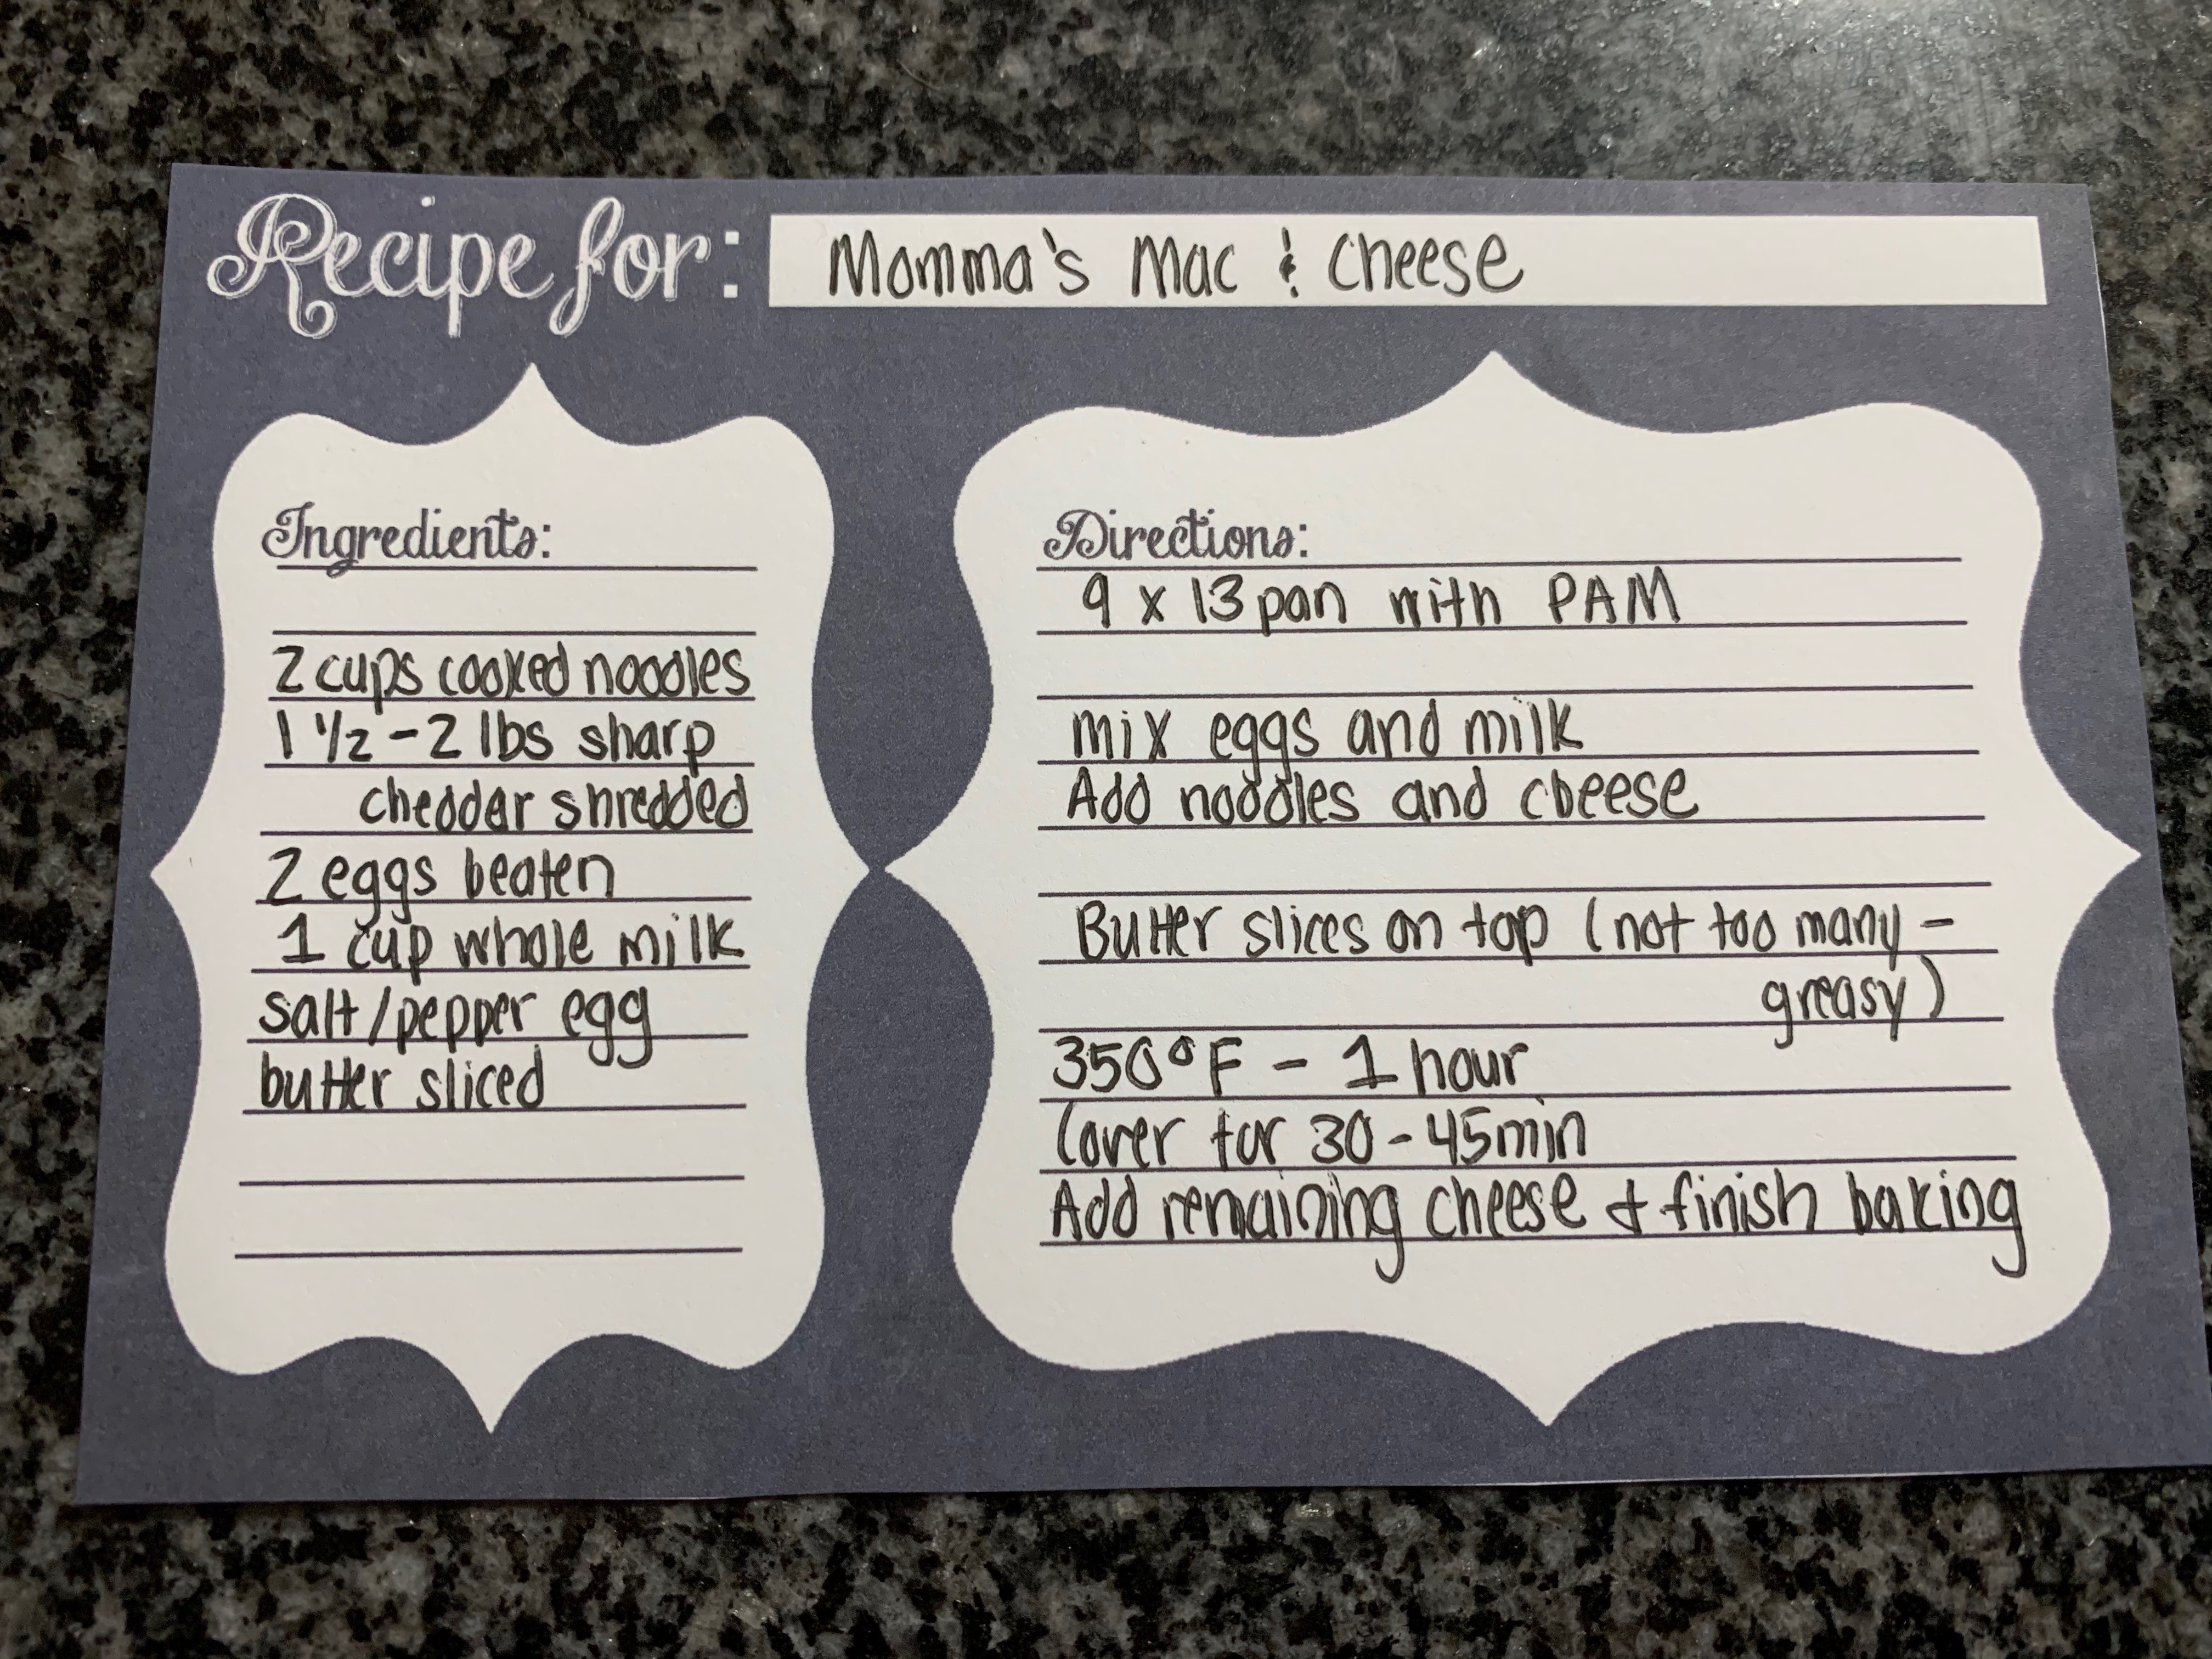 Recipe for: Momma's Mac & Cheese
Ingredients:
2 cups cooked noodles
1 1/2 - 2 lbs sharp
cheddar shredded
2 eggs beaten
1 cup whole milk
salt/pepper egg
butter sliced
Directions:
9 x 13 pan with PAM
mix eggs and milk
Add noodles and cheese
Butter slices on top (not too many -
greasy)
350°F - 1 hour
Cover for 30-45min
Add remaining cheese + finish baking